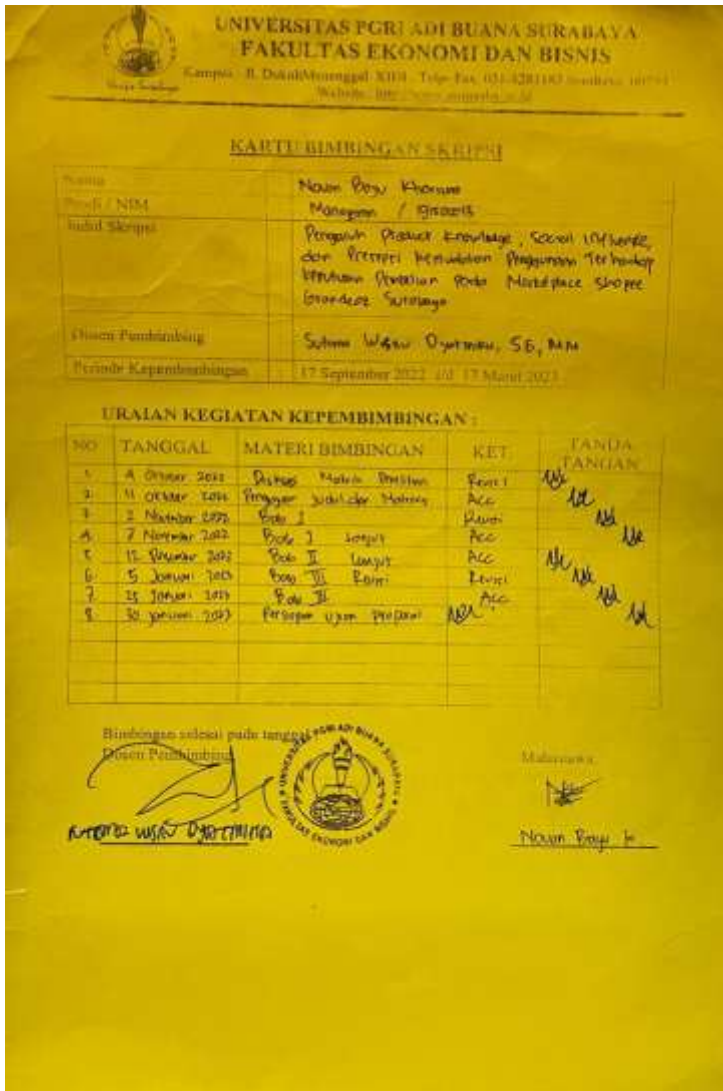 UNIVERSITAS PGRI ADI BUANA SURABAYA
FAKULTAS EKONOMI DAN BISNIS
Kampus : Jl. Dukuh Menanggal XII/4 Telp. Fax. 031-8281183 Surabaya
Website :
KARTU BIMBINGAN SKRIPSI
Nama : Novan Bayu
Prodi / NIM : Manajemen /
Judul Skripsi : Pengaruh Product Knowledge, Social Influence,
dan Persepsi Kemudahan Penggunaan Terhadap
Keputusan Pembelian Pada Marketplace Shopee
Surabaya
Dosen Pembimbing : Sutama Wisnu Dyatmika, SE, MM
Periode Kepembimbingan : 17 September 2022 s/d 17 Maret 2023
URAIAN KEGIATAN KEPEMBIMBINGAN :
NO TANGGAL MATERI BIMBINGAN KET. TANDA TANGAN
1 4 Oktober 2022 Diskusi Matrik Penelitian Revisi
2 11 Oktober 2022 Pengajuan Judul dan Matrik Acc
3 2 November 2022 Bab I Revisi
4 7 November 2022 Bab I Lanjut Acc
5 12 Desember 2022 Bab II Lanjut Acc
6 5 Januari 2023 Bab III Revisi Revisi
7 25 Januari 2023 Bab III Acc
8 30 Januari 2023 Persiapan Ujian Proposal
Bimbingan selesai pada tanggal
Dosen Pembimbing
UNIVERSITAS PGRI ADI BUANA SURABAYA
FAKULTAS EKONOMI DAN BISNIS
Mahasiswa
Sutama Wisnu Dyatmika
Novan Bayu K